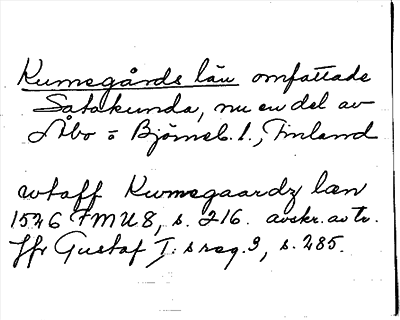 Kumogårds län omfattade
Satakunda, nu en del av
Åbo o Björneb. l., Finland
utaff Kwmogaardz læn
1526 FMU 8, s. 216. avskr. av tr.
Jfr Gustaf I:s reg. 3, s. 285.